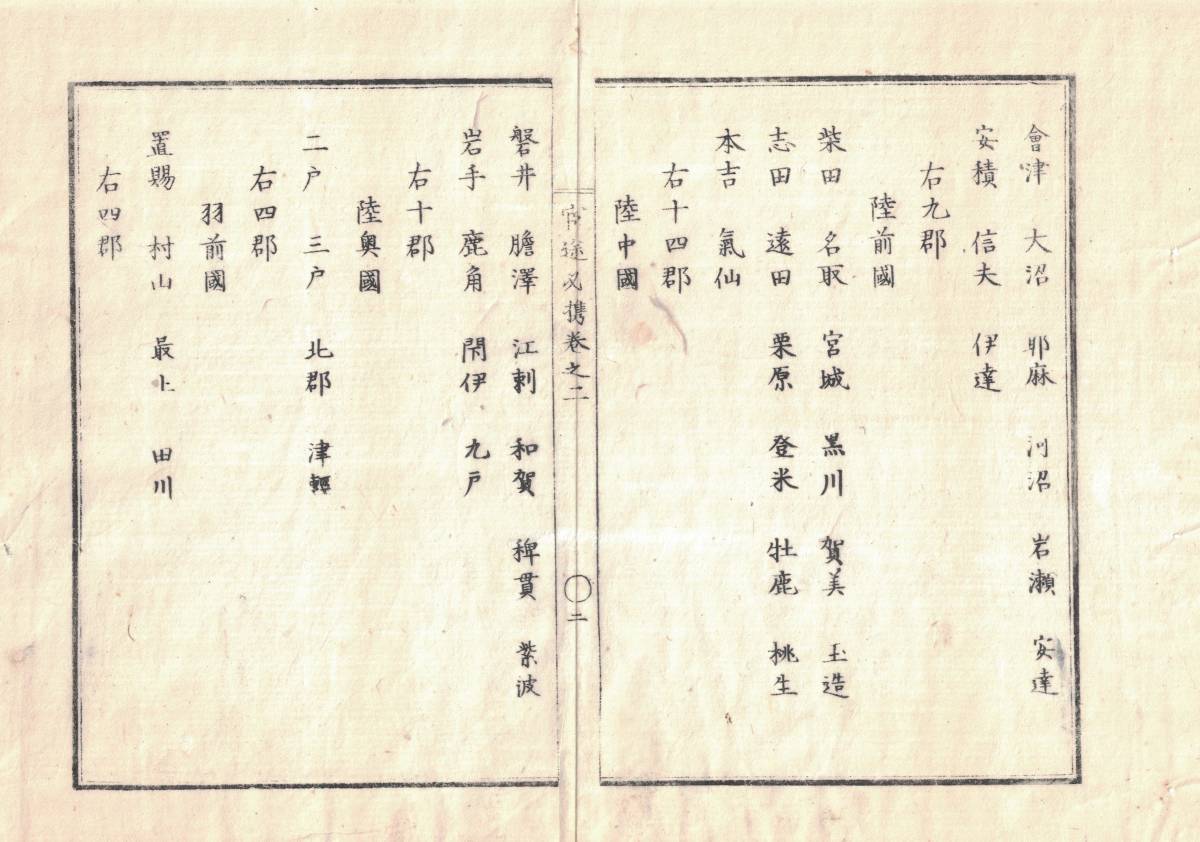 會津 大沼 耶麻 河沼 岩瀬 安達
安積 信夫 伊達
右九郡
陸前國
柴田 名取 宮城 黒川 賀美 玉造
志田 遠田 栗原 登米 牡鹿 桃生
本吉 氣仙
右十四郡
陸中國
官途必携卷之二
二
磐井 膽澤 江刺 和賀 稗貫 紫波
岩手 鹿角 閇伊 九戸
右十郡
陸奥國
二戸 三戸 北郡 津輕
右四郡
羽前國
置賜 村山 最上 田川
右四郡